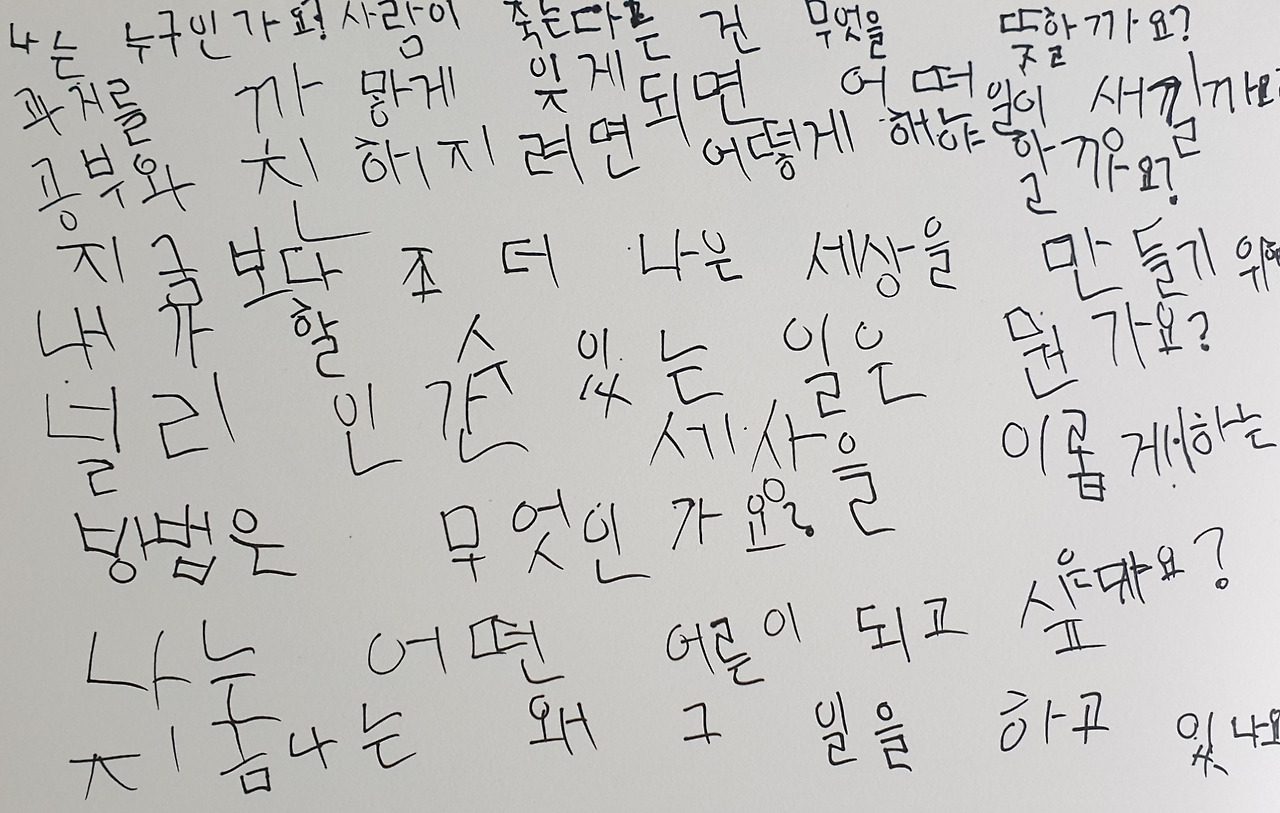 나는 누구인가요? 사람이 죽는다는 건 무엇을 뜻할까요?
과거를 까맣게 잊게 되면 어떠 일이 새길까요
공부와 친하지려면 어떻게 해야 할까요?
지금보다 조 더 나은 세상을 만들기 위해
내가 할 수 있는 일은 뭔가요?
널리 인간 세상을 이롭게하는
방법은 무엇인가요?
나는 어떤 어른이 되고 싶은가요?
지금 나는 왜 그 일을 하고 있나요